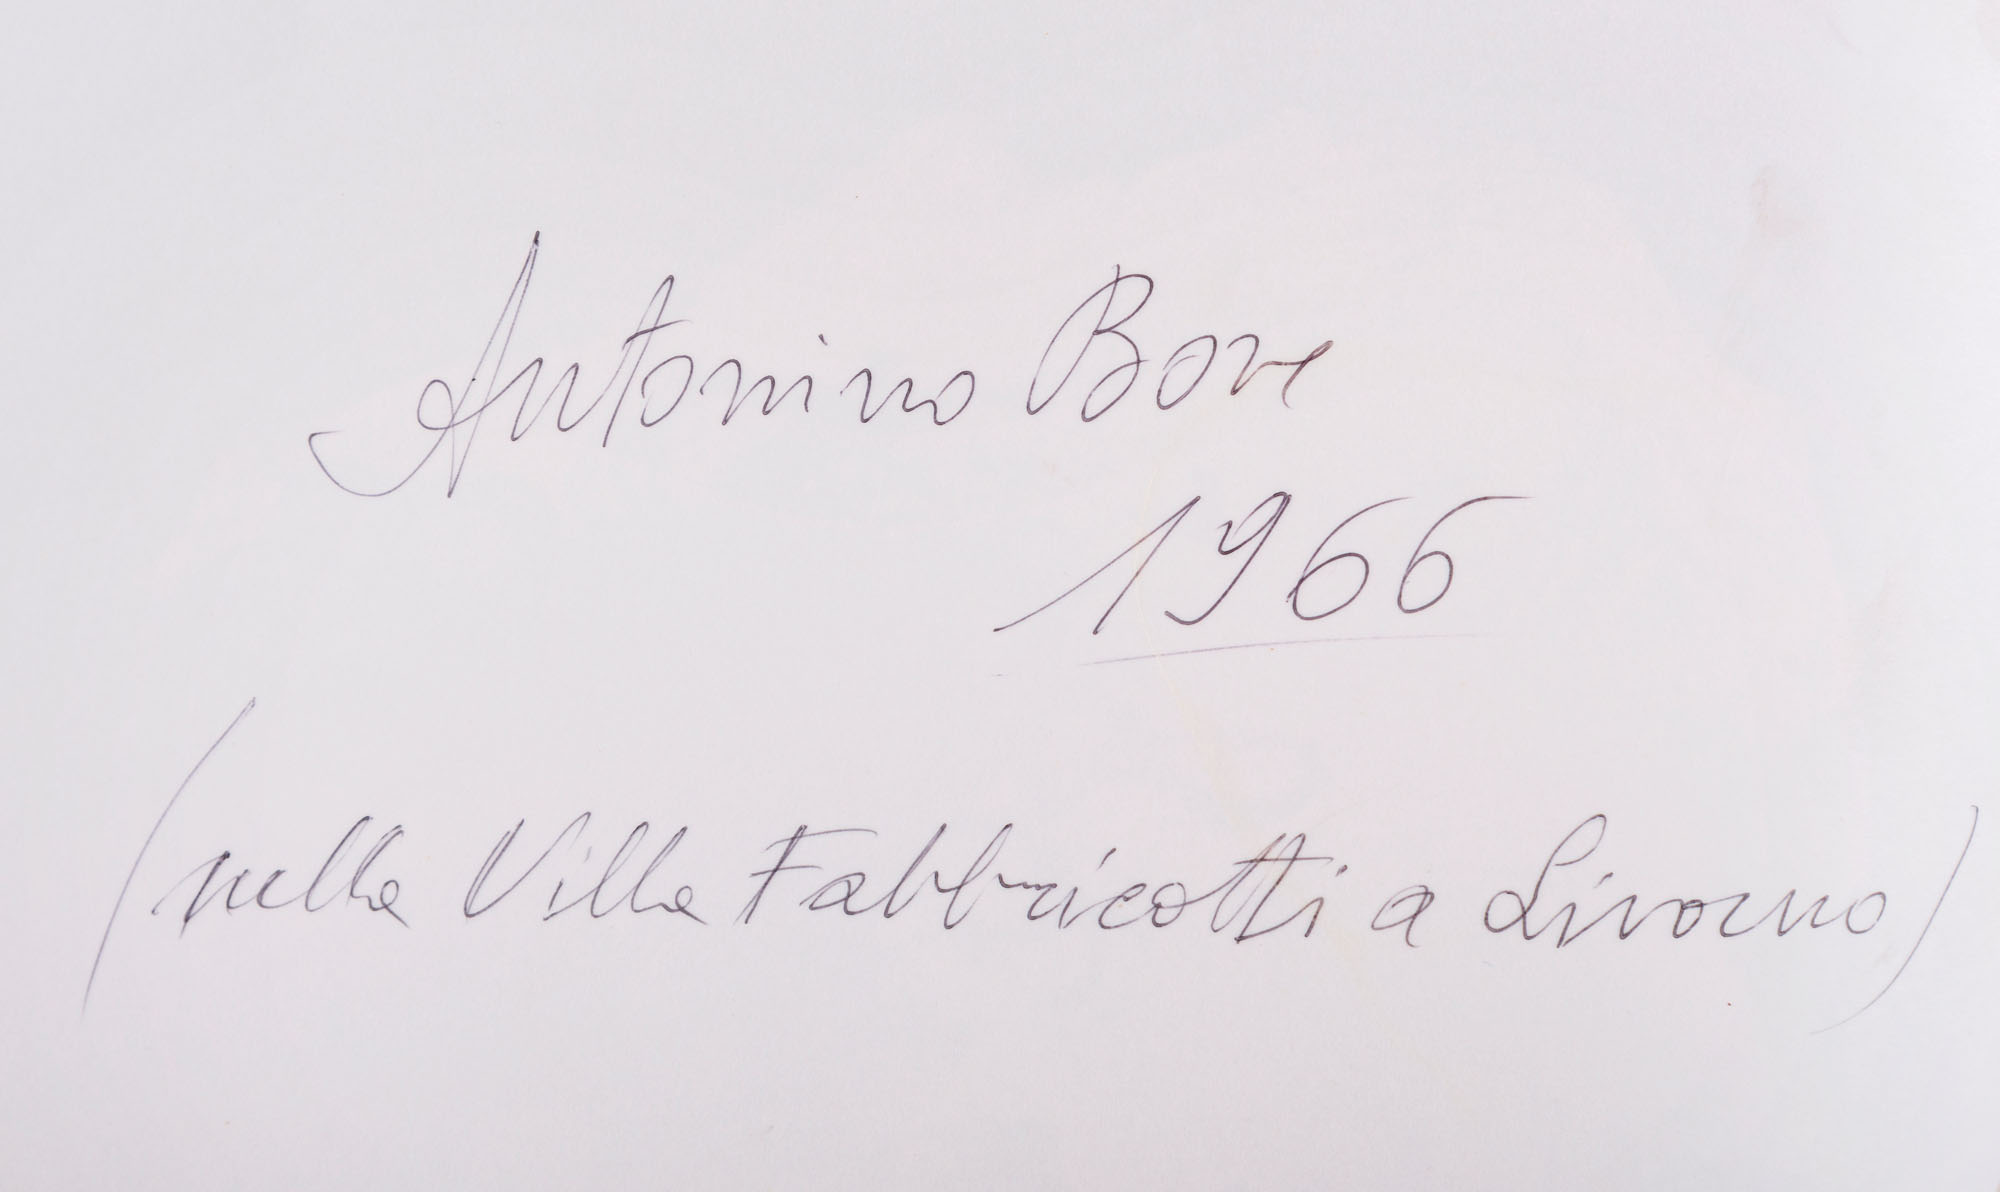 Antonino Bove
1966
(nella Villa Fabbricotti a Livorno)